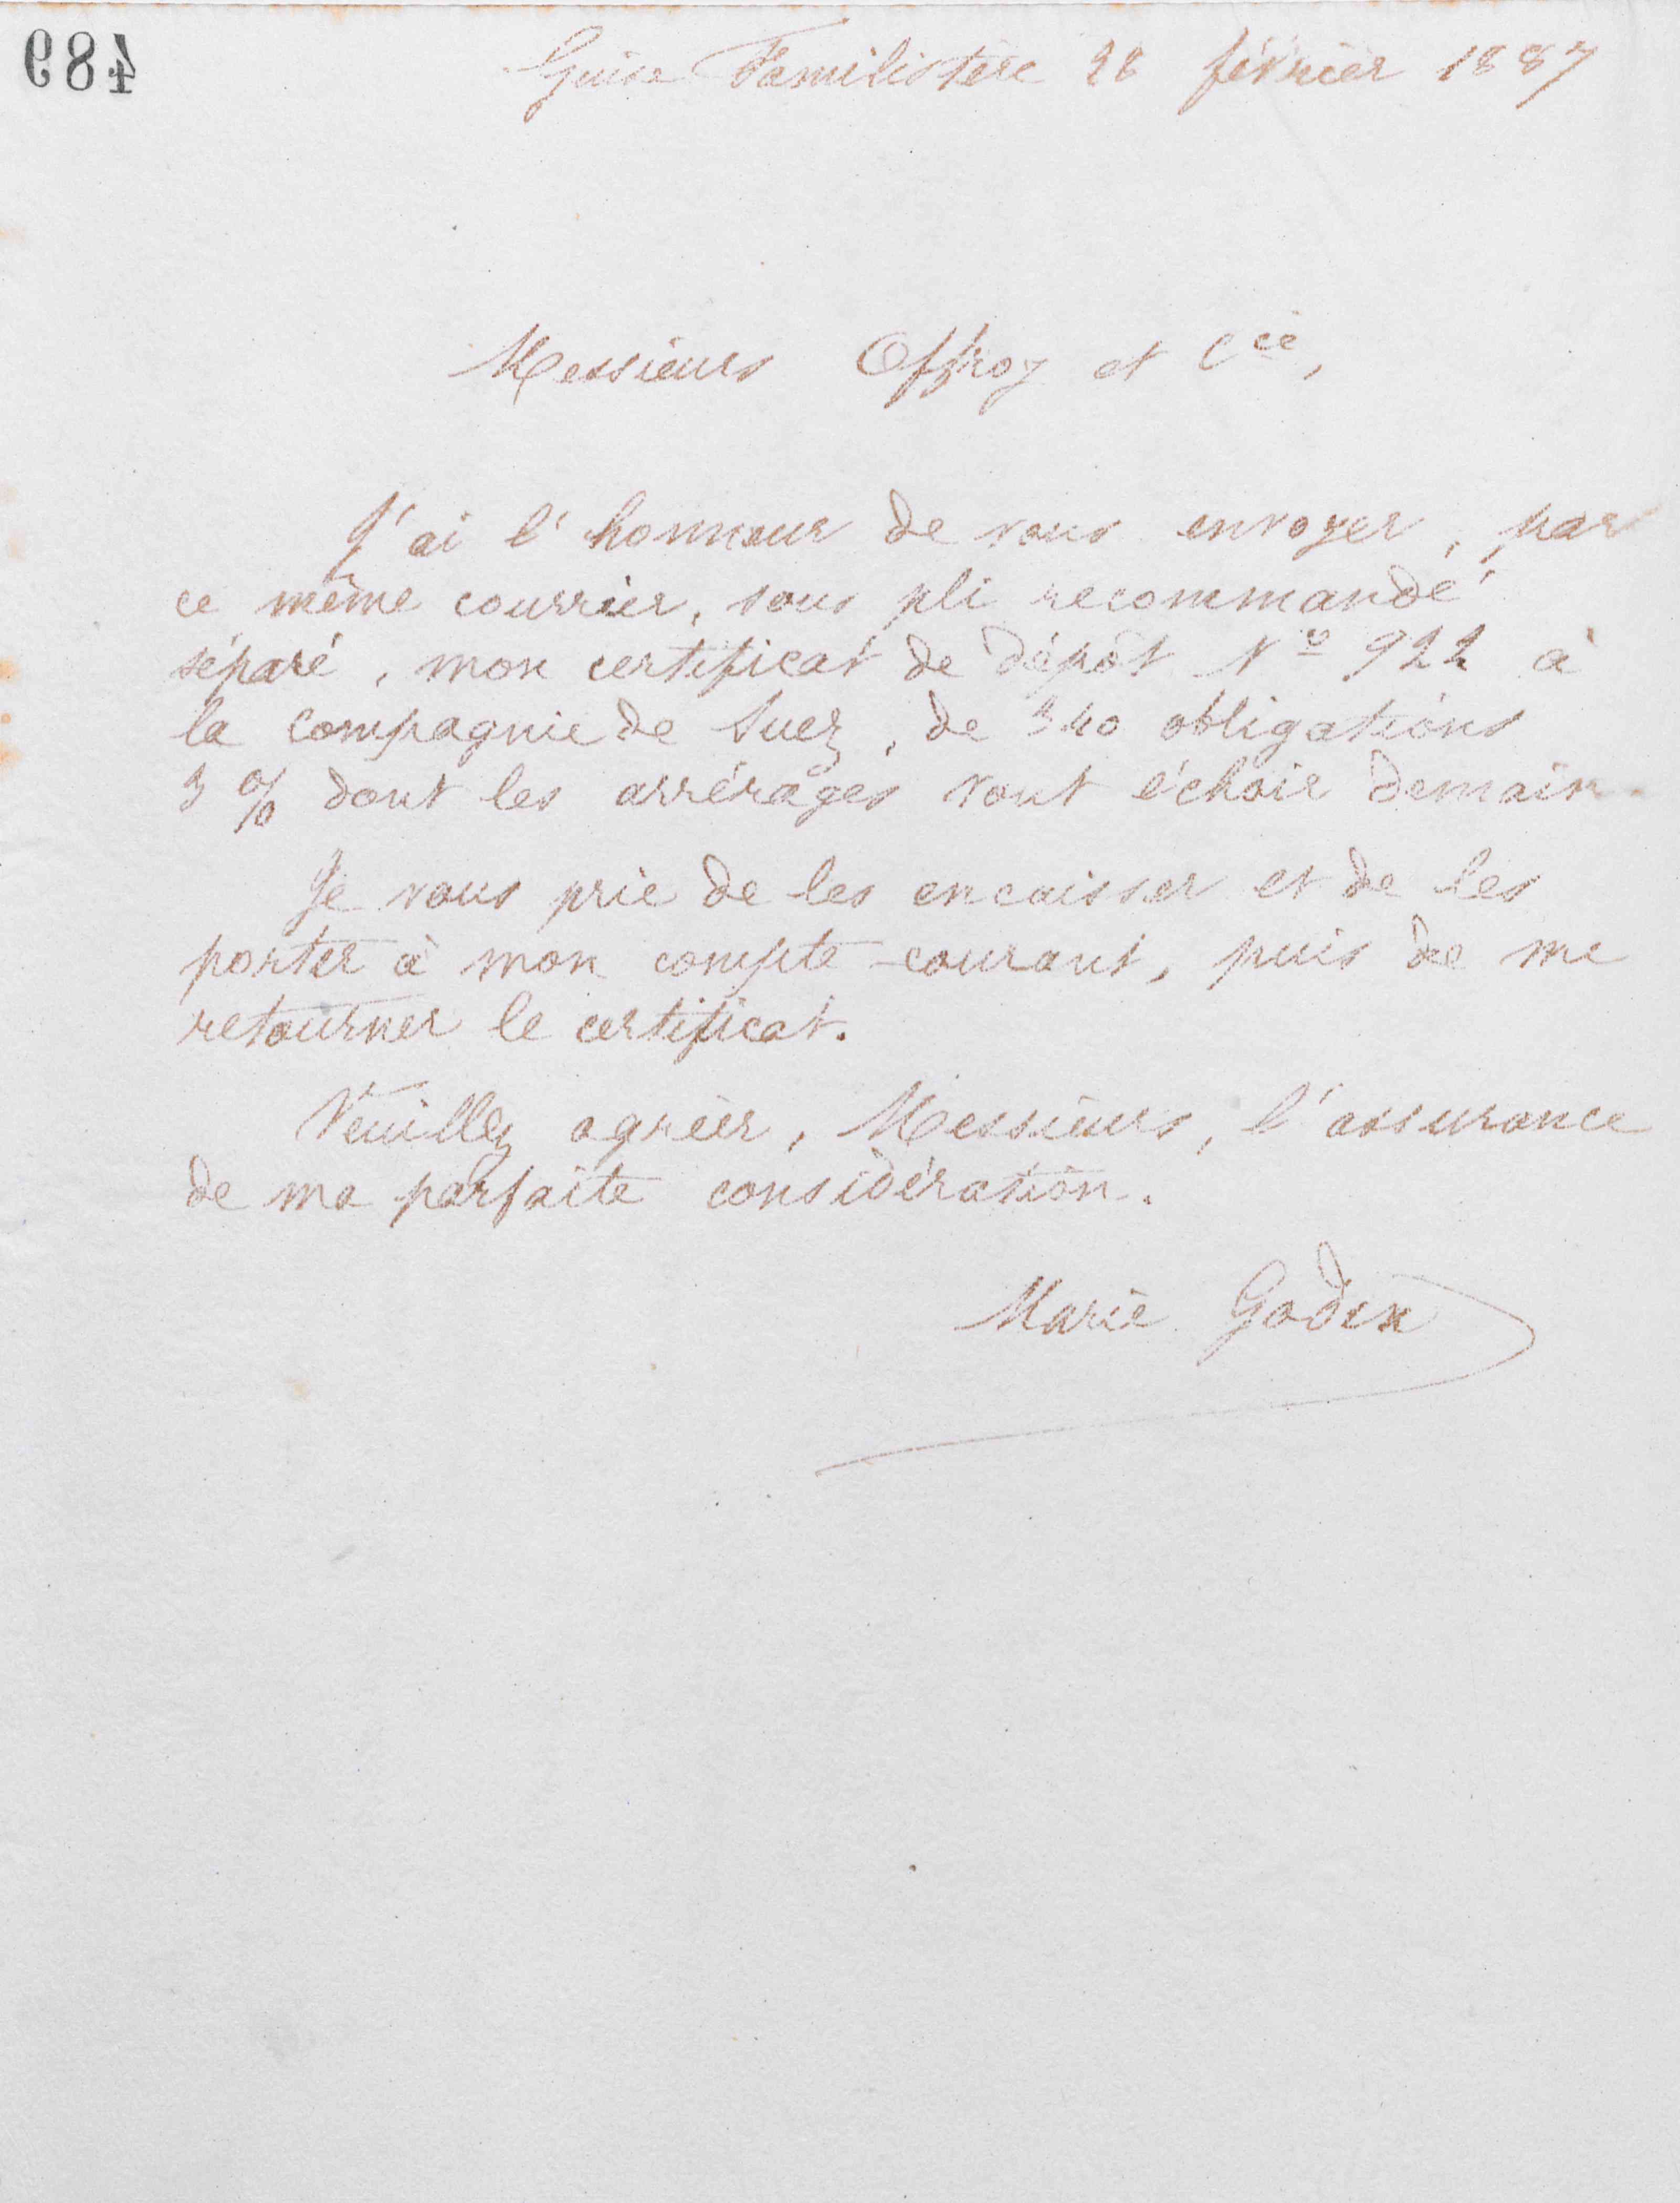 489
Guise Familistère 28 février 1887
Messieurs Offroy et Cie,
J'ai l'honneur de vous envoyer, par
ce même courrier, sous pli recommandé
séparé, mon certificat de dépôt No 922 à
la Compagnie de Suez, de 340 obligations
3 % dont les arrérages vont échoir demain.
Je vous prie de les encaisser et de les
porter à mon compte-courant, puis de me
retourner le certificat.
Veuillez agréer, Messieurs, l'assurance
de ma parfaite considération.
Marie Godin